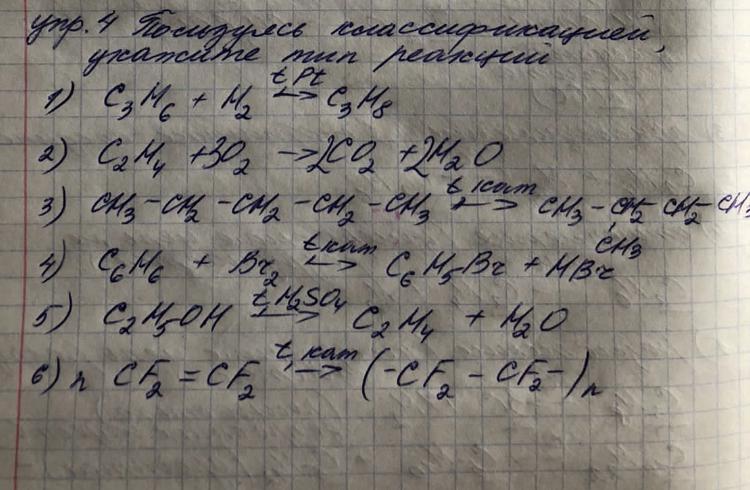 упр. 4 Пользуясь классификацией,
укажите тип реакций
1) C₃H₆ + H₂ →(t, Pt) C₃H₈
2) C₂H₄ + 3O₂ → 2CO₂ + 2H₂O
3) CH₃ – CH₂ – CH₂ – CH₂ – CH₃ →(t, кат) CH₃ – CH₂ CH₂ – CH₃
CH₃
4) C₆H₆ + Br₂ →(t кат) C₆H₅Br + HBr
5) C₂H₅OH →(t, H₂SO₄) C₂H₄ + H₂O
6) n CF₂ = CF₂ →(t, кат) (-CF₂ – CF₂-)n